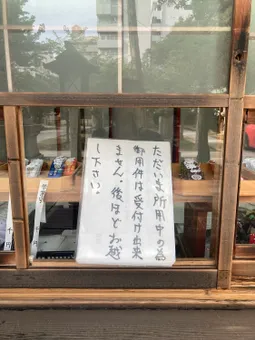 ただいま所用中の為
御用件は受付け出来
ません。後ほどお越
し下さい。